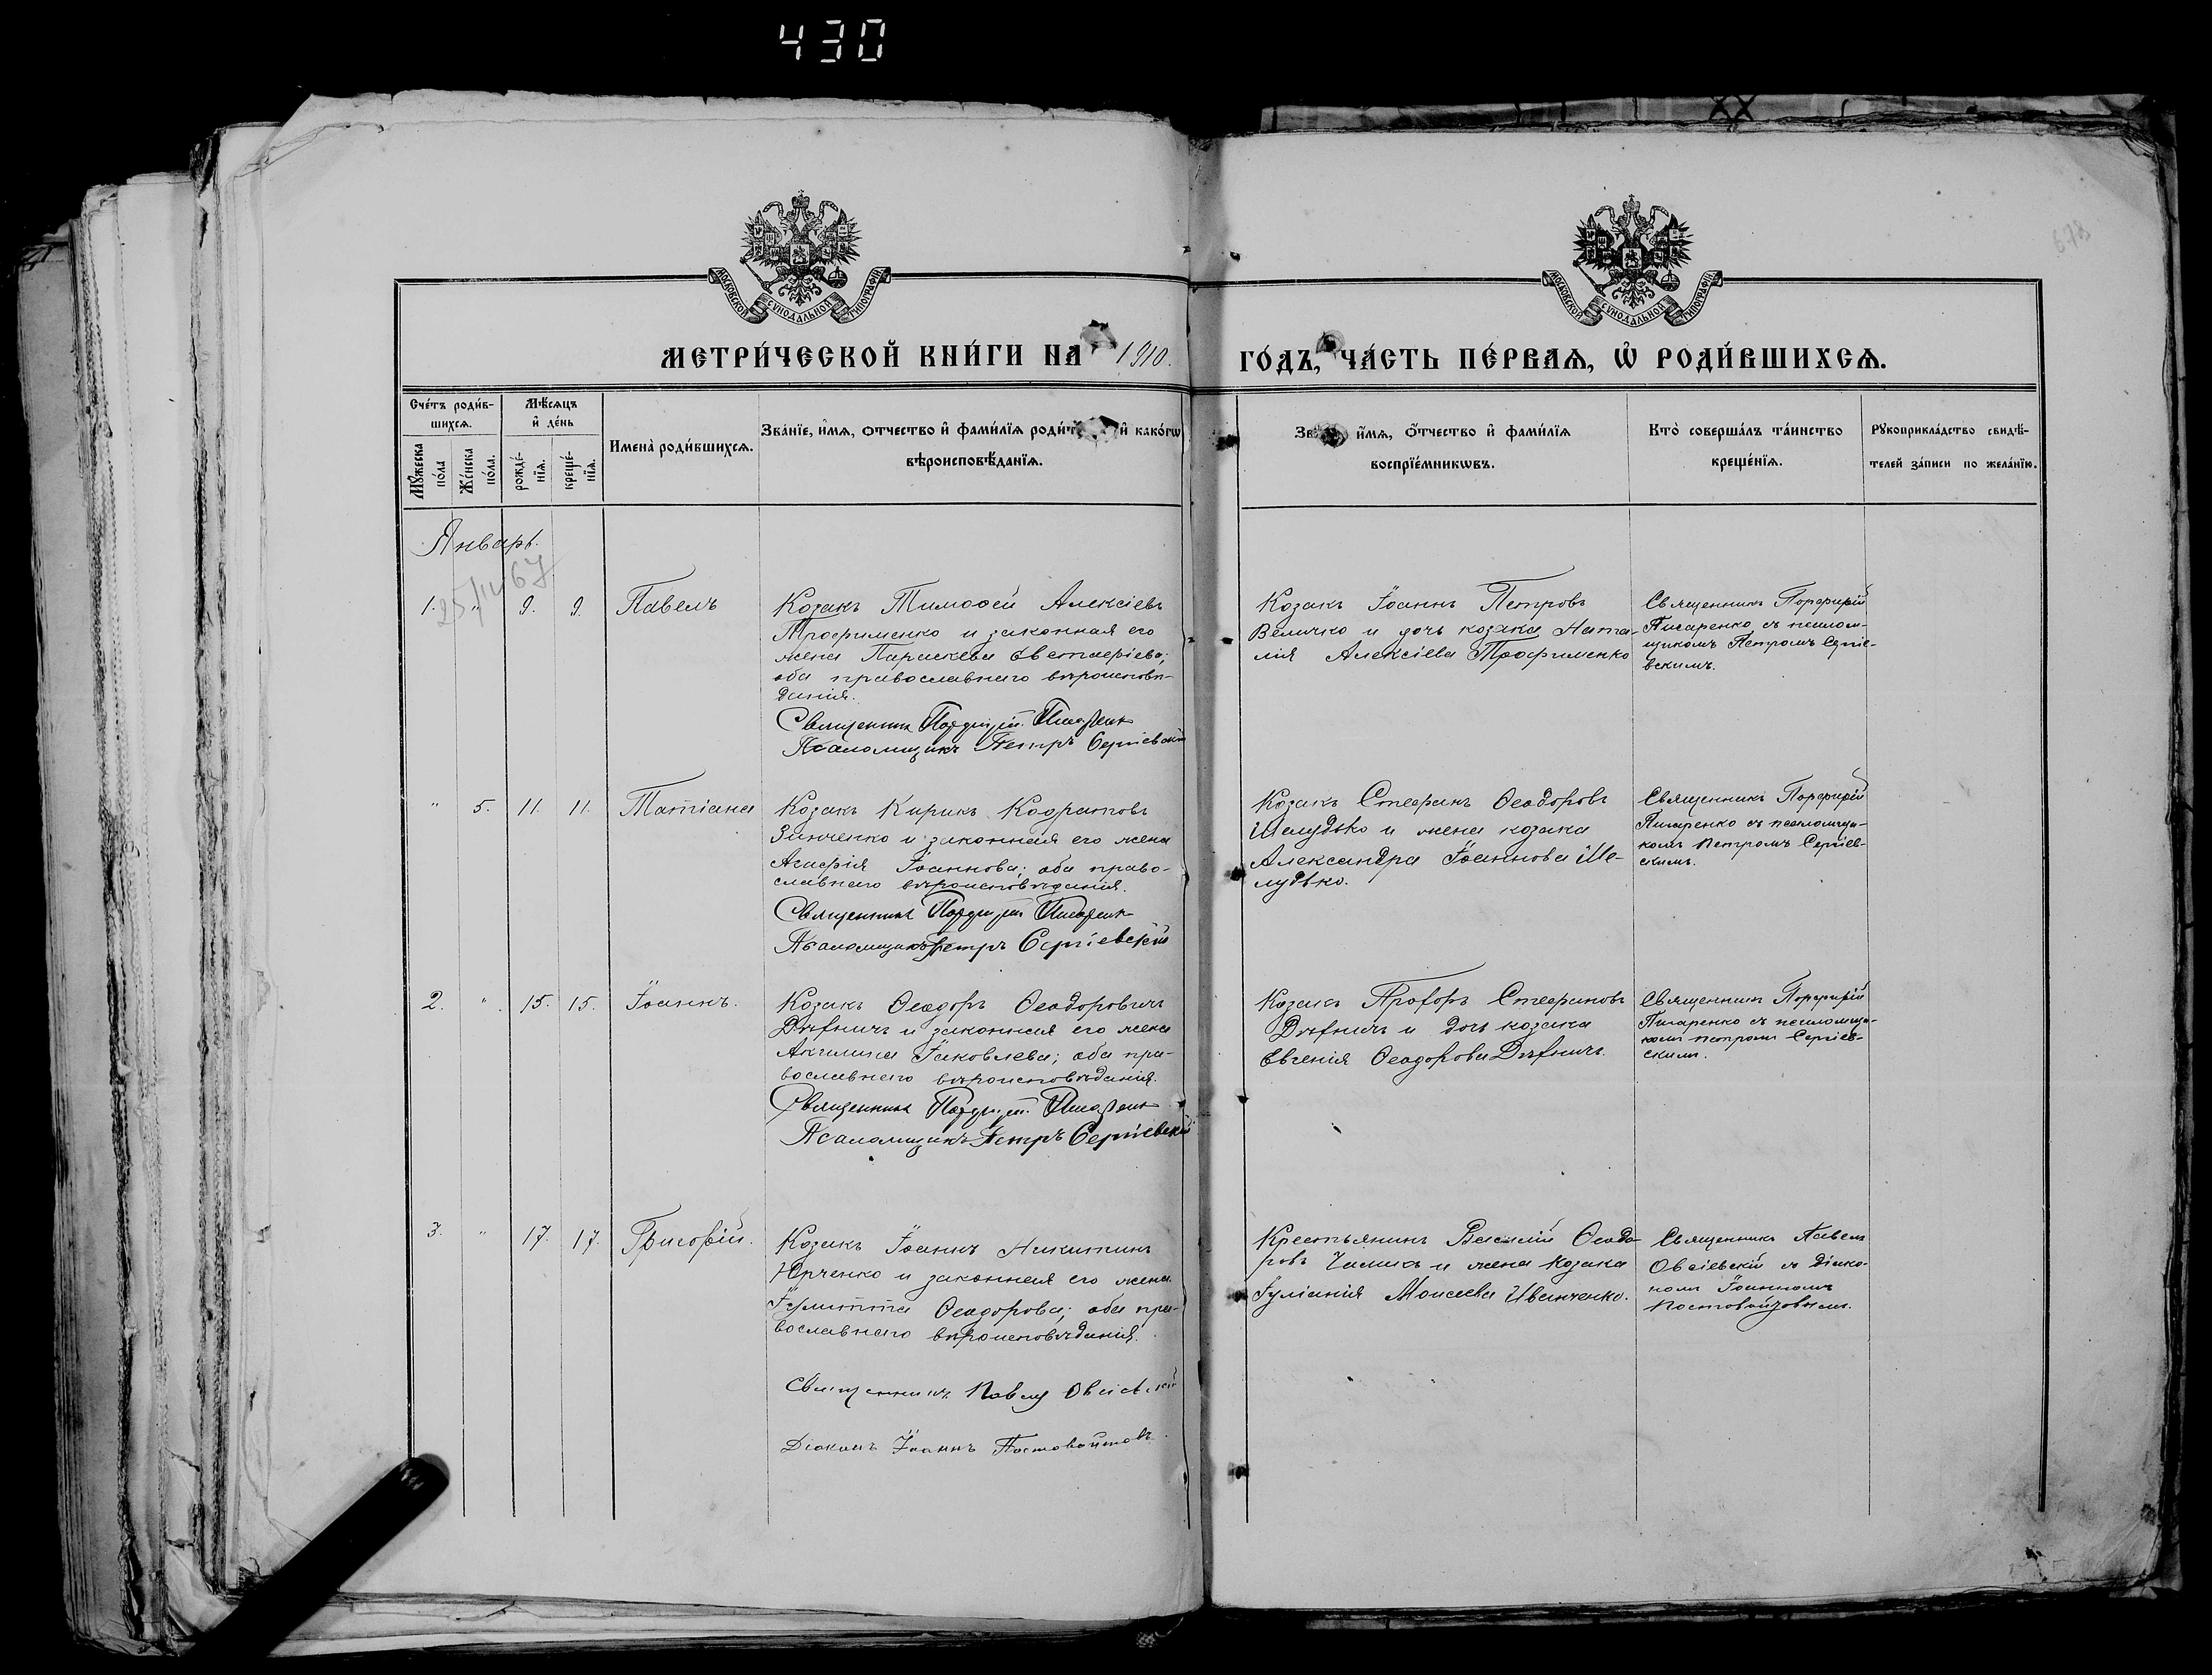 430
678
МОСКОВСКОЙ СѴНОДАЛЬНОЙ ТИПОГРАФІИ
МОСКОВСКОЙ СѴНОДАЛЬНОЙ ТИПОГРАФІИ
МЕТРИ́ЧЕСКОЙ КНИ́ГИ НА 1910. ГО́ДЪ, ЧА́СТЬ ПЕ́РВАѦ, Ѡ҆ РОДИ́ВШИХСѦ.
Сче́тъ роди́в-
шихсѧ.
Мꙋ́жеска по́ла
Же́нска по́ла.
Мѣ́сѧцъ
и҆ де́нь
рожде́-
нїѧ.
креще́-
нїѧ.
Имена̀ роди́вшихсѧ.
Зва́нїе, и҆́мѧ, ѻтчество и҆ фами́лїѧ и҆ како́гѡ
вѣроисповѣ́данїѧ.
и҆́мѧ, ѻ҆́тчество и҆ фами́лїѧ
воспрїе́мникѡвъ.
Кто̀ соверша́лъ та́инство
креще́нїѧ.
Рꙋкоприкла́дство свидѣ́-
телей за́писи по жела́нїю.
Январь.
1. " 9. 9. Павелъ
Козакъ Тимоѳей Алексіевъ
Трофименко и законная его
жена Параскева Евстафіева;
оба православнаго вѣроисповѣ-
данія.
Священникъ Порфирій Писаренко
Псаломщикъ Петръ Сергіевскій
Козакъ Іоаннъ Петровъ
Величко и дочь козака Ната-
лія Алексіева Трофименко
Священникъ Порфирій
Писаренко съ псалом-
щикомъ Петромъ Сергіе-
вскимъ.
" 5. 11. 11. Татіана
Козакъ Кирикъ Кодратовъ
Зинченко и законная его жена
Агафія Іоаннова; оба право-
славнаго вѣроисповѣданія.
Священникъ Порфирій Писаренко
Псаломщикъ Петръ Сергіевскій
Козакъ Стефанъ Ѳеодоровъ
Шелудько и жена козака
Александра Іоаннова Ше-
лудько.
Священникъ Порфирій
Писаренко съ псаломщи-
комъ Петромъ Сергіев-
скимъ.
2. " 15. 15. Іоаннъ.
Козакъ Ѳеодоръ Ѳеодоровичъ
и законная его жена
Акилина Іаковлева; оба пра-
вославнаго вѣроисповѣданія.
Священникъ Порфирій Писаренко
Псаломщикъ Петръ Сергіевскій
Козакъ Прохоръ Стефановъ
и дочь козака
Евгенія Ѳеодорова
Священникъ Порфирій
Писаренко съ псаломщи-
комъ Петромъ Сергіев-
скимъ.
3. " 17. 17. Григорій.
Козакъ Іоаннъ Никитинъ
Юрченко и законная его жена
Іулитта Ѳеодорова; оба пра-
вославнаго вѣроисповѣданія.
Священникъ Павелъ Овсіевскій
Діаконъ Іоаннъ
Крестьянинъ Василій Ѳеодо-
ровъ и жена козака
Іуліанія Моисеева Иванченко.
Священникъ Павелъ
Овсіевскій съ діако-
номъ Іоанномъ